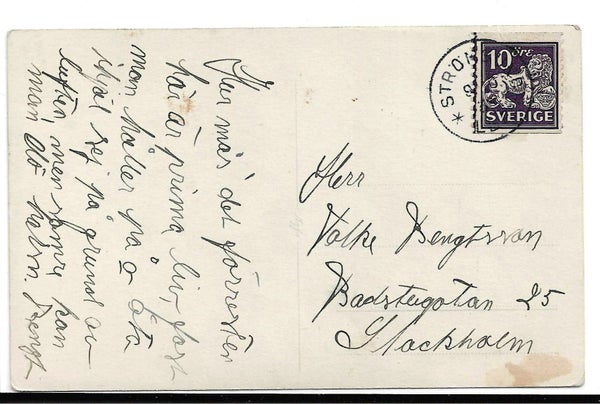 Hur mås det förresten
här är prima liv, fast
man håller på o äta
ihjäl sej på grund av
luften, men somna kan
man då
Bengt
STRÖM
10 öre
SVERIGE
Herr
Valke Bengtsson
Badstugatan 25
Stockholm